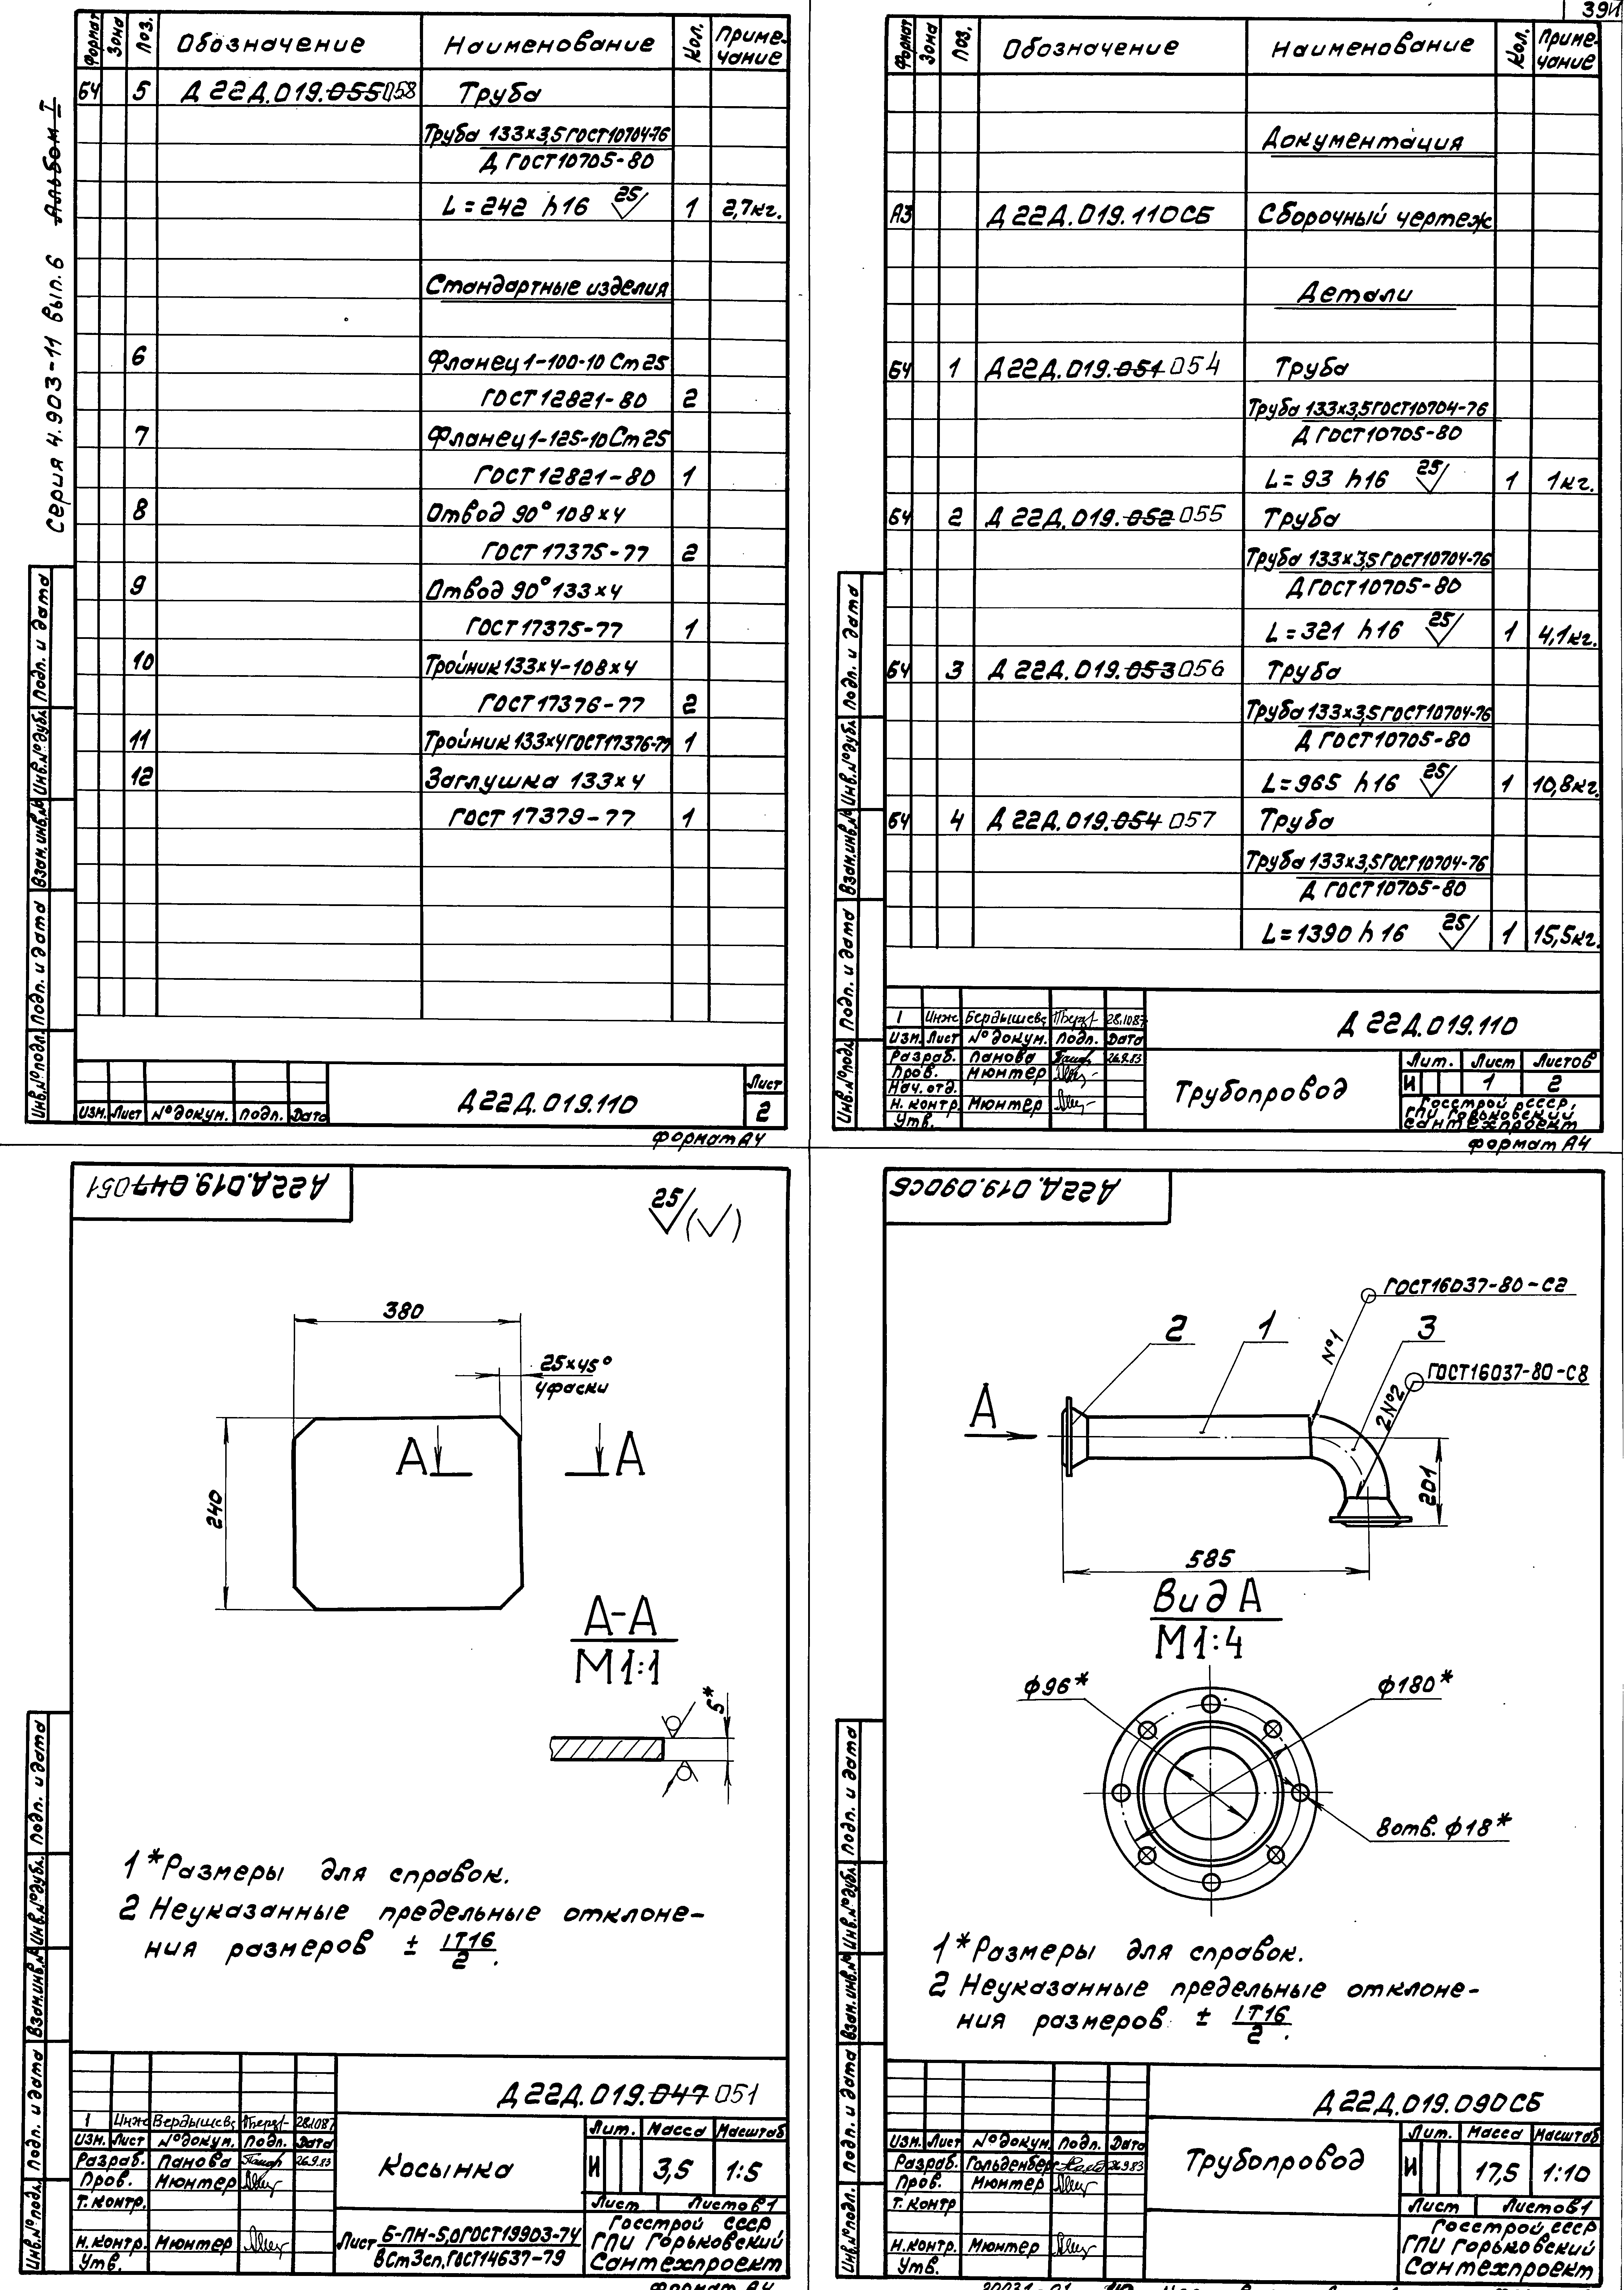 Серия 4.903-11 вып.6 Альбом I
Формат Зона Поз. Обозначение Наименование Кол. Приме-
чание
БЧ 5 Д 22Д.019.055 058 Труба
Труба 133х3,5 ГОСТ10704-76
Д ГОСТ10705-80
L=242 h16 25 1 2,7кг.
Стандартные изделия
6 Фланец 1-100-10 Ст25
ГОСТ 12821-80 2
7 Фланец 1-125-10 Ст25
ГОСТ 12821-80 1
8 Отвод 90° 108х4
ГОСТ 17375-77 2
9 Отвод 90° 133х4
ГОСТ 17375-77 1
10 Тройник 133х4-108х4
ГОСТ 17376-77 2
11 Тройник 133х4 ГОСТ17376-77 1
12 Заглушка 133х4
ГОСТ 17379-77 1
Инв.№подл. Подп. и дата Взам.инв.№ Инв.№дубл. Подп. и дата
Изм. Лист №докум. Подп. Дата
Д 22Д.019.110
Лист
2
Формат А4
39
Формат Зона Поз. Обозначение Наименование Кол. Приме-
чание
Документация
А3 Д 22Д.019.110СБ Сборочный чертеж
Детали
БЧ 1 Д 22Д.019.051 054 Труба
Труба 133х3,5 ГОСТ10704-76
Д ГОСТ10705-80
L=93 h16 25 1 1кг.
БЧ 2 Д 22Д.019.052 055 Труба
Труба 133х3,5 ГОСТ10704-76
Д ГОСТ10705-80
L=321 h16 25 1 4,1кг.
БЧ 3 Д 22Д.019.053 056 Труба
Труба 133х3,5 ГОСТ10704-76
Д ГОСТ10705-80
L=965 h16 25 1 10,8кг.
БЧ 4 Д 22Д.019.054 057 Труба
Труба 133х3,5 ГОСТ10704-76
Д ГОСТ10705-80
L=1390 h16 25 1 15,5кг.
Инв.№подл. Подп. и дата Взам.инв.№ Инв.№дубл. Подп. и дата
1 Инж Бердышева 28.1087
Изм. Лист №докум. Подп. Дата
Разраб. Панова 26.9.83
Пров. Мюнтер
Нач. отд.
Н. контр. Мюнтер
Утв.
Д 22Д.019.110
Трубопровод
Лит. Лист Листов
И 1 2
Госстрой РСССР,
ГПИ Горьковский
Сантехпроект
Формат А4
Д22Д.019.047 051
25
380
25х45°
4 фаски
А А
240
А-А
М1:1
5*
1 *Размеры для справок.
2 Неуказанные предельные отклоне-
ния размеров ± IT16/2.
Инв.№подл. Подп. и дата Взам.инв.№ Инв.№дубл. Подп. и дата
1 Инж Бердышева 28.1087
Изм. Лист №докум. Подп. Дата
Разраб. Панова 26.9.83
Пров. Мюнтер
Т. контр.
Н. контр. Мюнтер
Утв.
Д 22Д.019.047 051
Косынка
Лит. Масса Масштаб
И 3,5 1:5
Лист Листов 1
Лист Б-ПН-5,0 ГОСТ19903-74
ВСт3сп, ГОСТ14637-79
Госстрой СССР
ГПИ Горьковский
Сантехпроект
Формат А4
Д22Д.019.090СБ
ГОСТ16037-80-С2
2 1 №1 3
ГОСТ16037-80-С8
2№2
А
201
585
Вид А
М1:4
ф96* ф180*
8 отв. ф18*
1 *Размеры для справок.
2 Неуказанные предельные отклоне-
ния размеров ± IT16/2.
Инв.№подл. Подп. и дата Взам.инв.№ Инв.№дубл. Подп. и дата
Изм. Лист №докум. Подп. Дата
Разраб. Гольденберг 26.9.83
Пров. Мюнтер
Т. контр
Н. контр. Мюнтер
Утв.
Д 22Д.019.090СБ
Трубопровод
Лит. Масса Масштаб
И 17,5 1:10
Лист Листов 1
Госстрой СССР
ГПИ Горьковский
Сантехпроект